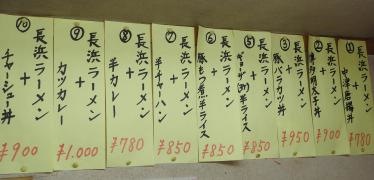 ① 長浜ラーメン
+
中津唐揚丼
¥780
② 長浜ラーメン
+
博多明太子丼
¥900
③ 長浜ラーメン
+
豚バラカツ丼
¥950
⑤ 長浜ラーメン
+
ギョーザ(3ケ)半ライス
¥850
⑥ 長浜ラーメン
+
豚もつ煮半ライス
¥850
⑦ 長浜ラーメン
+
半チャーハン
¥850
⑧ 長浜ラーメン
+
半カレー
¥780
⑨ 長浜ラーメン
+
カツカレー
¥1.000
⑩ 長浜ラーメン
+
チャーシュー丼
¥900